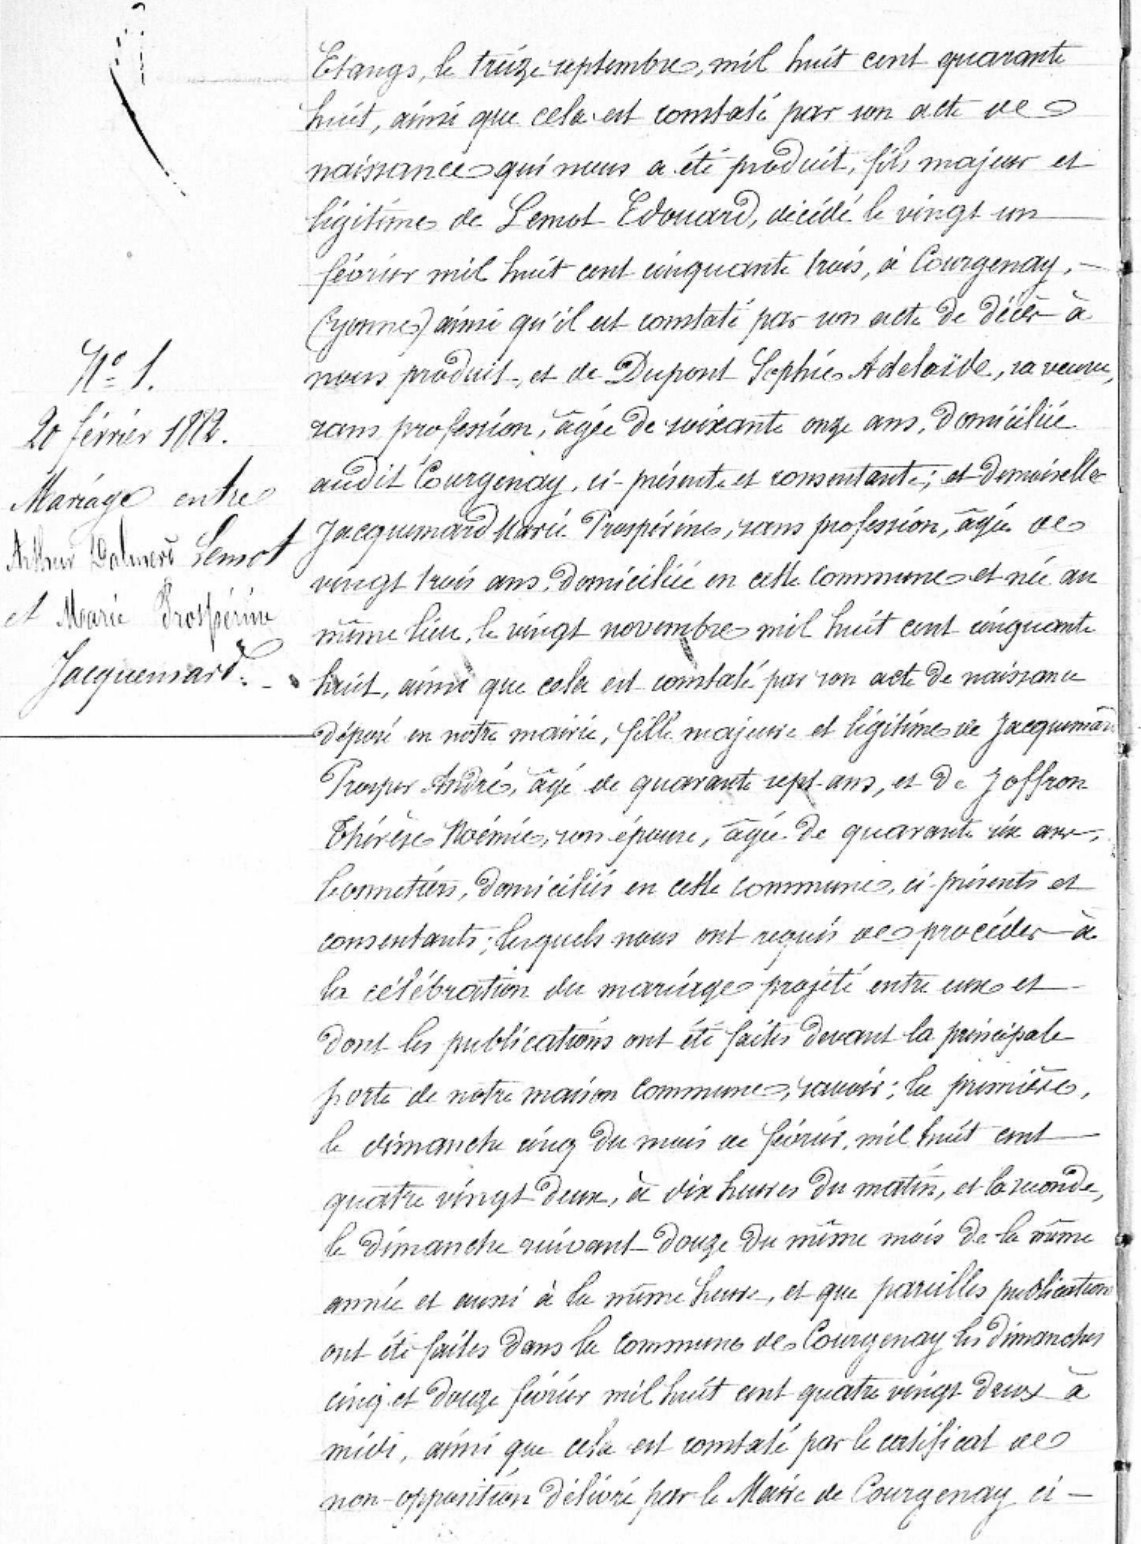 Etangs, le treize septembre, mil huit cent quarante
huit, ainsi que cela est constaté par son acte de
naissance qui nous a été produit, fils majeur et
légitime de Lemot Edouard, décédé le vingt un
février mil huit cent cinquante trois, à Courgenay,
(Yonne) ainsi qu'il est constaté par son acte de décès à
nous produit, et de Dupont Sophie Adelaïde, sa veuve,
sans profession, âgée de soixante onze ans, domiciliée
audit Courgenay, ci-présente et consentante; et demoiselle
Jacquemard Marie Prospérine, sans profession, âgée de
vingt trois ans, domiciliée en cette commune et née au
même lieu, le vingt novembre mil huit cent cinquante
huit, ainsi que cela est constaté par son acte de naissance
déposé en notre mairie, fille majeure et légitime de Jacquemard
Prosper André, âgé de quarante sept ans, et de Joffron
Thérèse Noémie, son épouse, âgée de quarante six ans,
bonnetiers, domiciliés en cette commune, ci-présents et
consentants; lesquels nous ont requis de procéder à
la célébration du mariage projeté entre eux et
dont les publications ont été faites devant la principale
porte de notre maison commune, savoir: la première,
le dimanche cinq du mois de février, mil huit cent
quatre vingt deux, à dix heures du matin, et la seconde,
le dimanche suivant douze du même mois de la même
année et aussi à la même heure, et que pareilles publications
ont été faites dans la commune de Courgenay les dimanches
cinq et douze février mil huit cent quatre vingt deux à
midi, ainsi que cela est constaté par le certificat de
non-opposition délivré par le Maire de Courgenay ci-
N° 1.
20 février 1882.
Mariage entre
Arthur Lemot
et Marie Prospérine
Jacquemard.